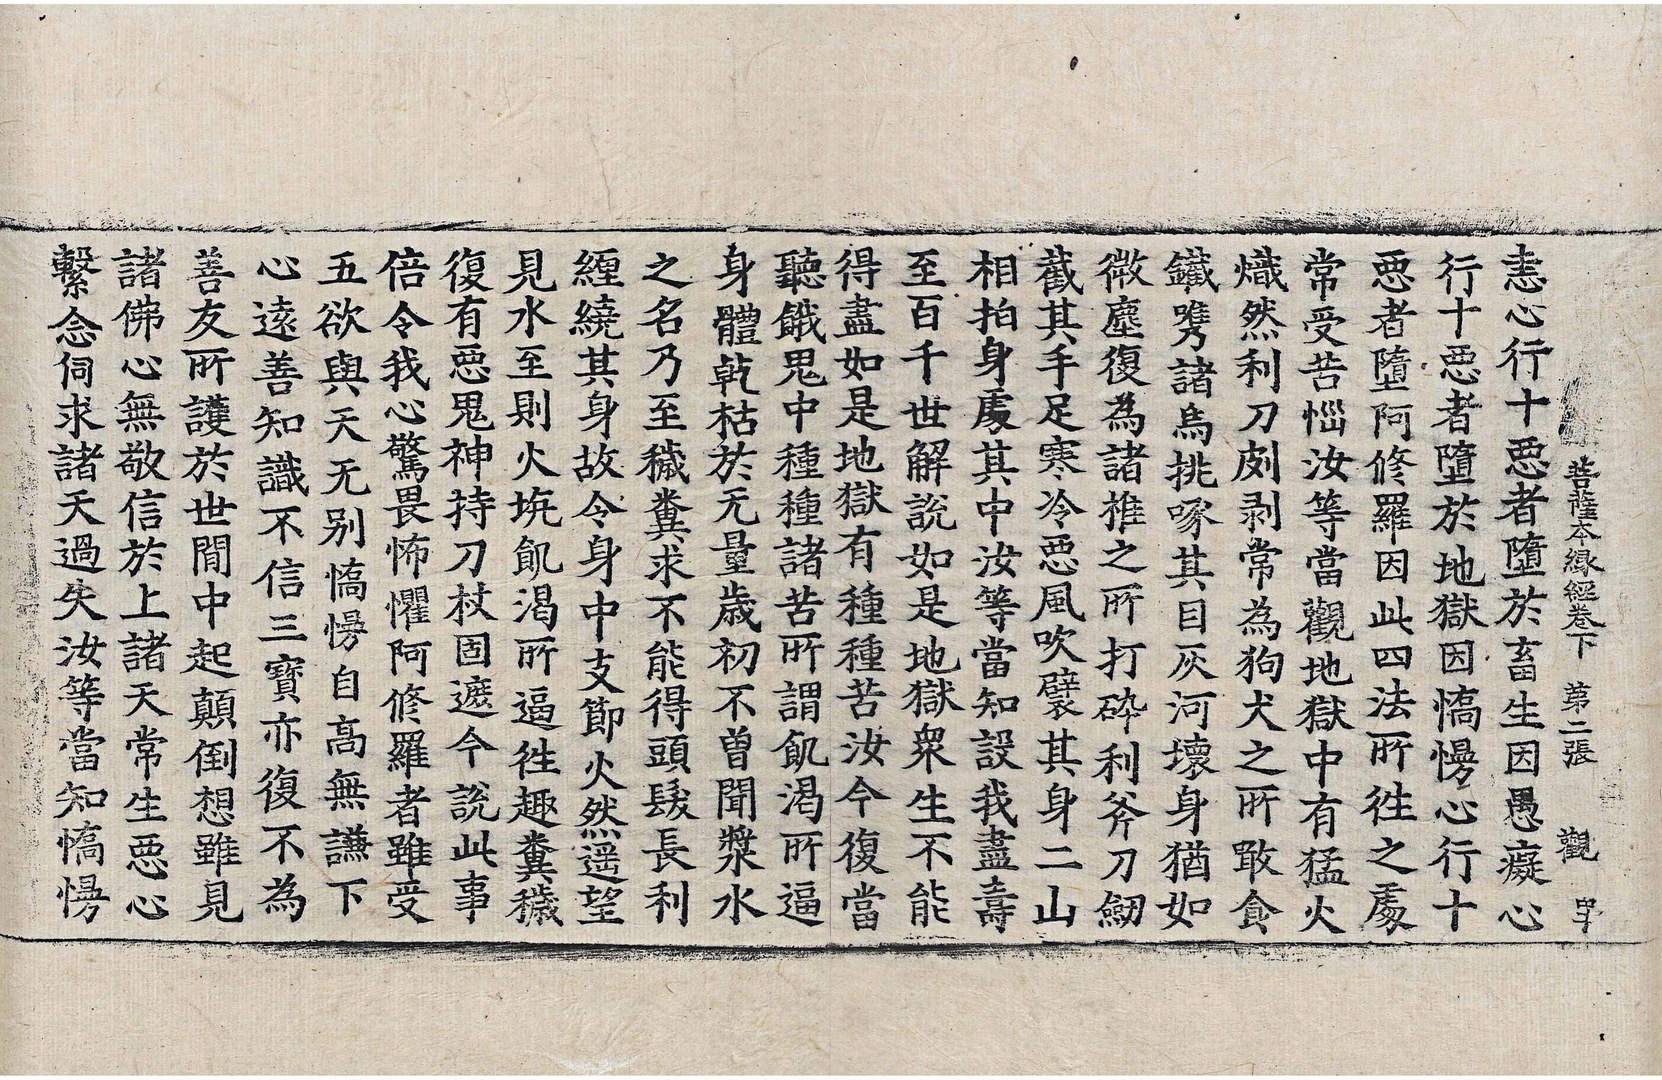 菩薩本緣經卷下 第二張 觀
恚心行十惡者墮於畜生因愚癡心
行十惡者墮於地獄因憍慢心行十
惡者墮阿修羅因此四法所往之處
常受苦惱汝等當觀地獄中有猛火
熾然利刀剝常為狗犬之所敢食
鐵㭰諸烏挑啄其目灰河壞身猶如
微塵復為諸椎之所打碎利斧刀劒
截其手足寒冷惡風吹襞其身二山
相拍身處其中汝等當知設我盡壽
至百千世解說如是地獄衆生不能
得盡如是地獄有種種苦汝今復當
聽餓鬼中種種諸苦所謂飢渴所逼
身體乾枯於无量歲初不曾聞漿水
之名乃至穢糞求不能得頭髮長利
纏繞其身故令身中支節火然遥望
見水至則火坑飢渴所逼往趣糞穢
復有惡鬼神持刀杖固遮令說此事
倍令我心驚畏怖懼阿修羅者雖受
五欲與天无别憍慢自高無謙下
心遠善知識不信三寶亦復不為
善友所護於世間中起顛倒想雖見
諸佛心無敬信於上諸天常生惡心
繫念伺求諸天過失汝等當知憍慢